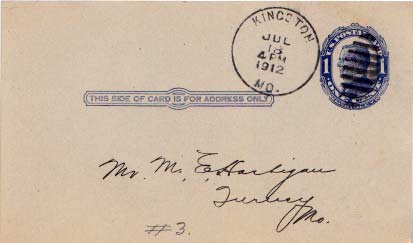 KINGSTON
JUL
18
4 PM
1912
MO.
U.S. POSTAL CARD
1 1
ONE CENT
THIS SIDE OF CARD IS FOR ADDRESS ONLY
Mr. M. E. Hartigan
Turney
Mo.
#3.